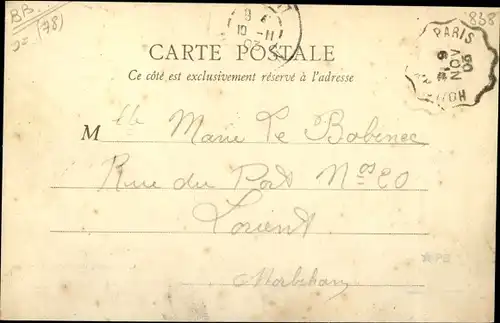 BB.
(78)
838
8 E
10 - 11
03
PARIS
9
NOV
03
CARTE POSTALE
Ce côté est exclusivement réservé à l'adresse
Mlle Marie Le Bobinec
Rue du Port Nos 20
Lorient
Morbihan